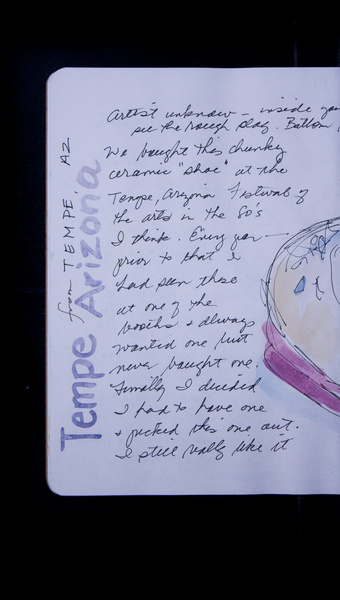 Artist unknown – inside you
see the rough slag. Bottom
We bought this chunky
ceramic "shoe" at the
Tempe, Arizona Festival of
the arts in the 80's
I think. Every year
prior to that I
had seen these
at one of the
booths + always
wanted one but
never bought one.
Finally I decided
I had to have one
+ picked this one out.
I still really like it
from TEMPE, AZ
Tempe Arizona